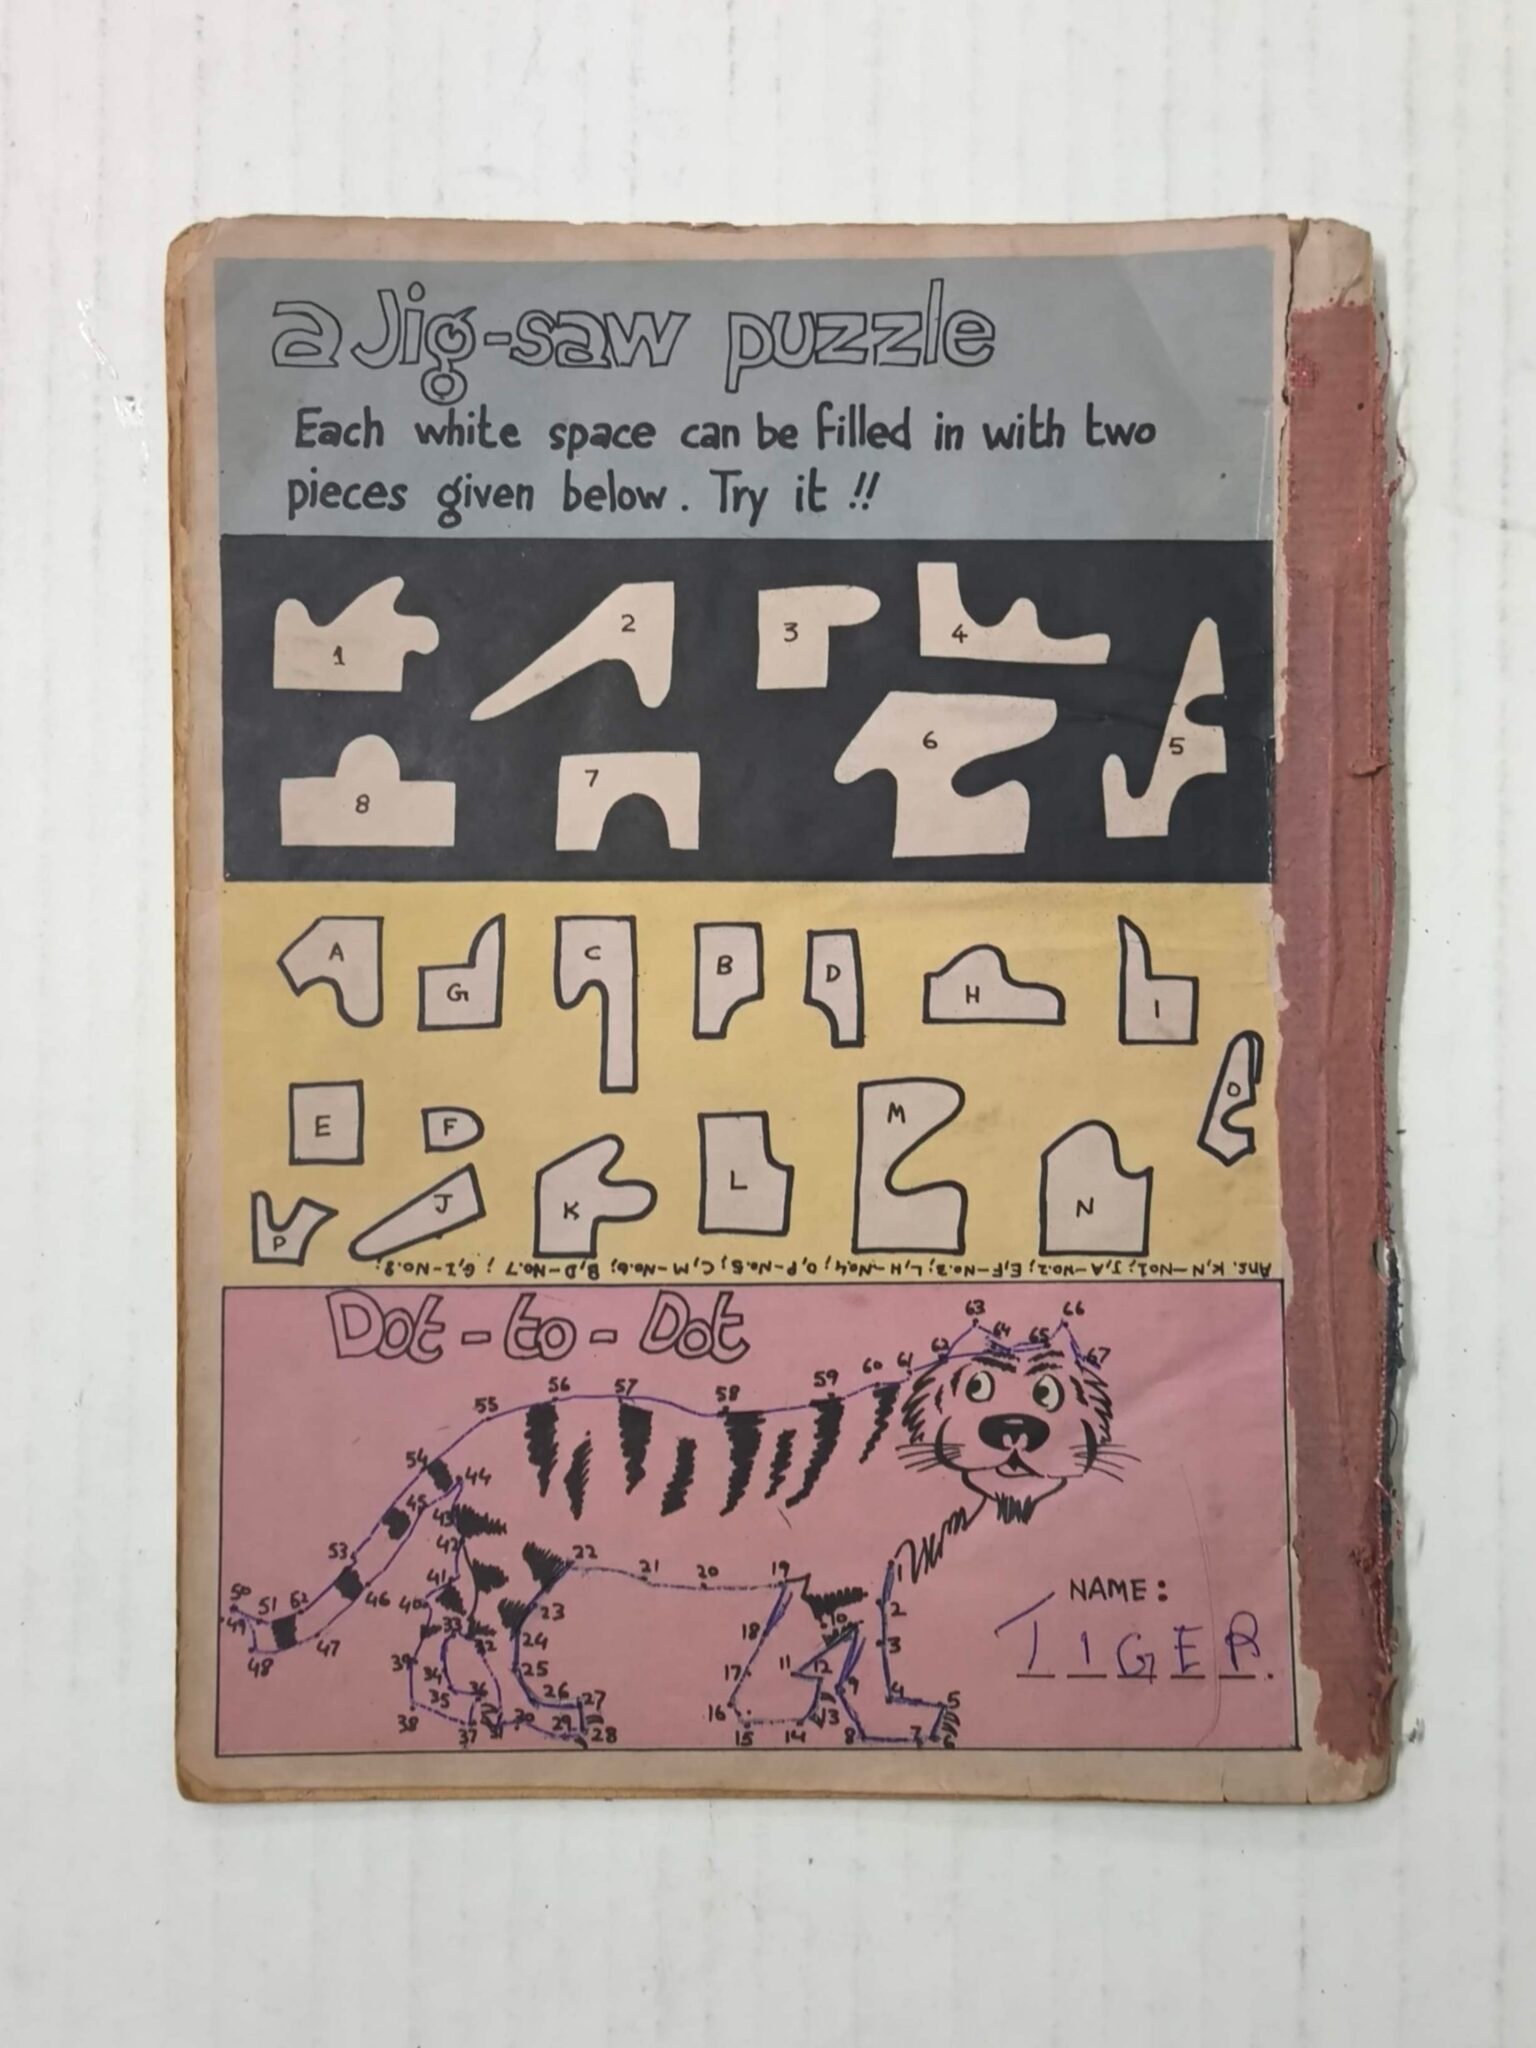 a Jig-saw puzzle
Each white space can be filled in with two
pieces given below. Try it !!
1
2
3
4
5
6
7
8
A
G
C
B
D
H
I
E
F
O
J
K
L
M
N
P
Ans. K,N-No1; J,A-No.2; E,F-No.3; L,H-No4; O,P-No.5; C,M-No.6; B,D-No.7; G,I-No.8.
Dot-to-Dot
63
66
64
65
62
67
61
60
59
58
57
56
55
54
44
45
43
42
53
41
46
40
50
51
52
49
47
48
22
21
20
19
23
18
10
2
24
33
32
3
39
34
25
17
11
12
36
35
26
27
9
4
5
38
16
13
37
31
30
29
28
15
14
8
7
6
NAME:
TIGER.